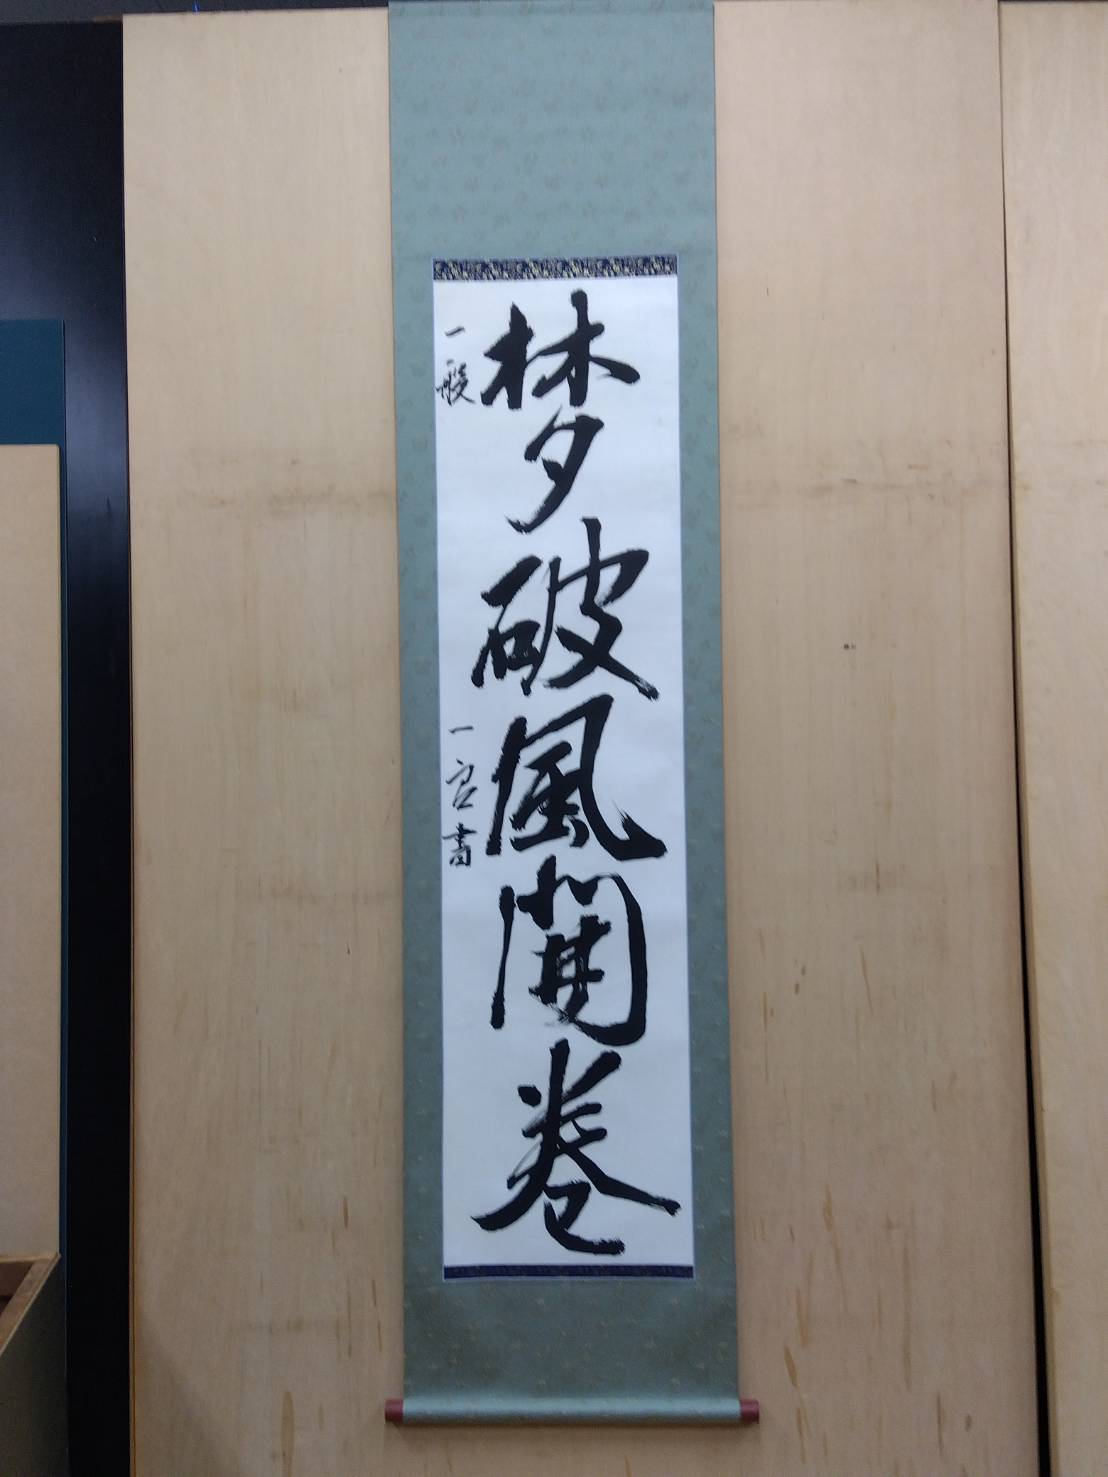 梦破風開巻
一般
一宮書